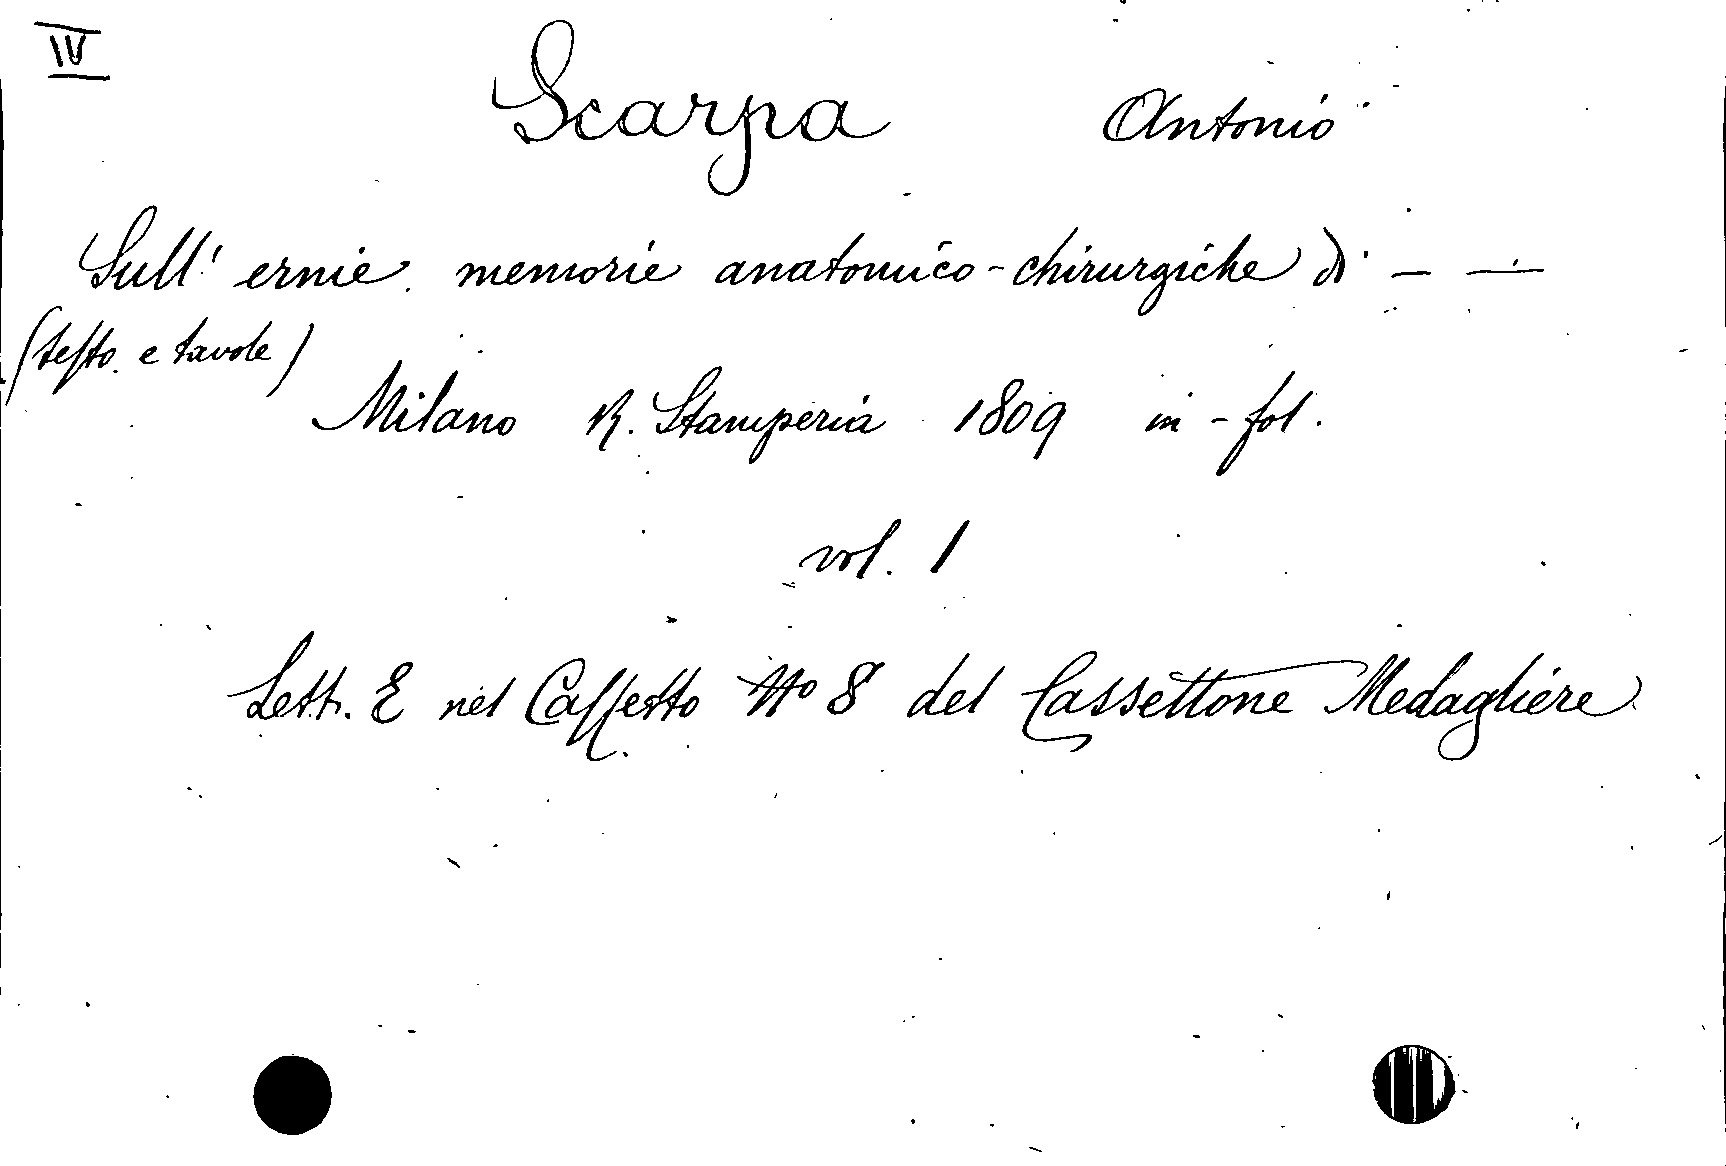 IV
Scarpa Antonio
Sull' ernie memorie anatomico-chirurgiche di — —
(testo e tavole)
Milano R. Stamperia 1809 in-fol.
vol. 1
Lett. E nel Cassetto No 8 del Cassettone Medagliere